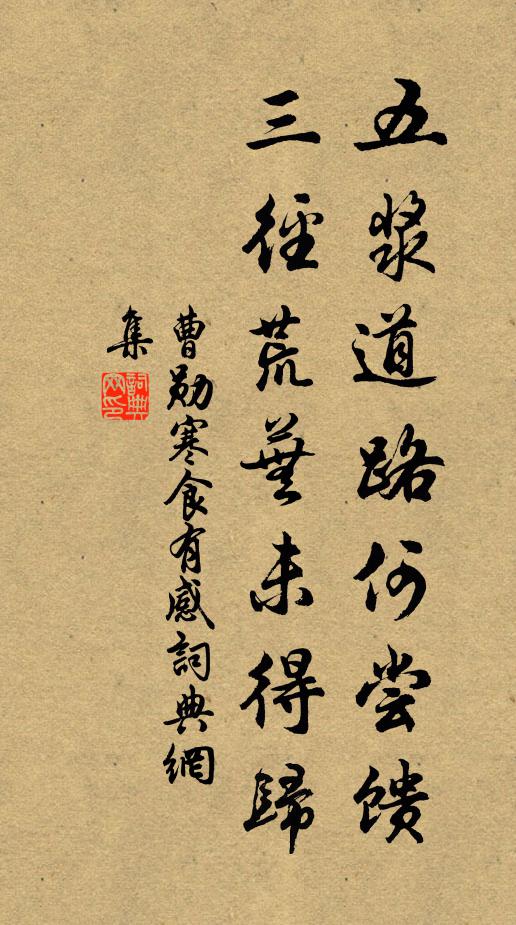 五漿道路何尝馈
三徑荒蕪未得歸
曹勛寒食有感詞典網
集
詞典網印